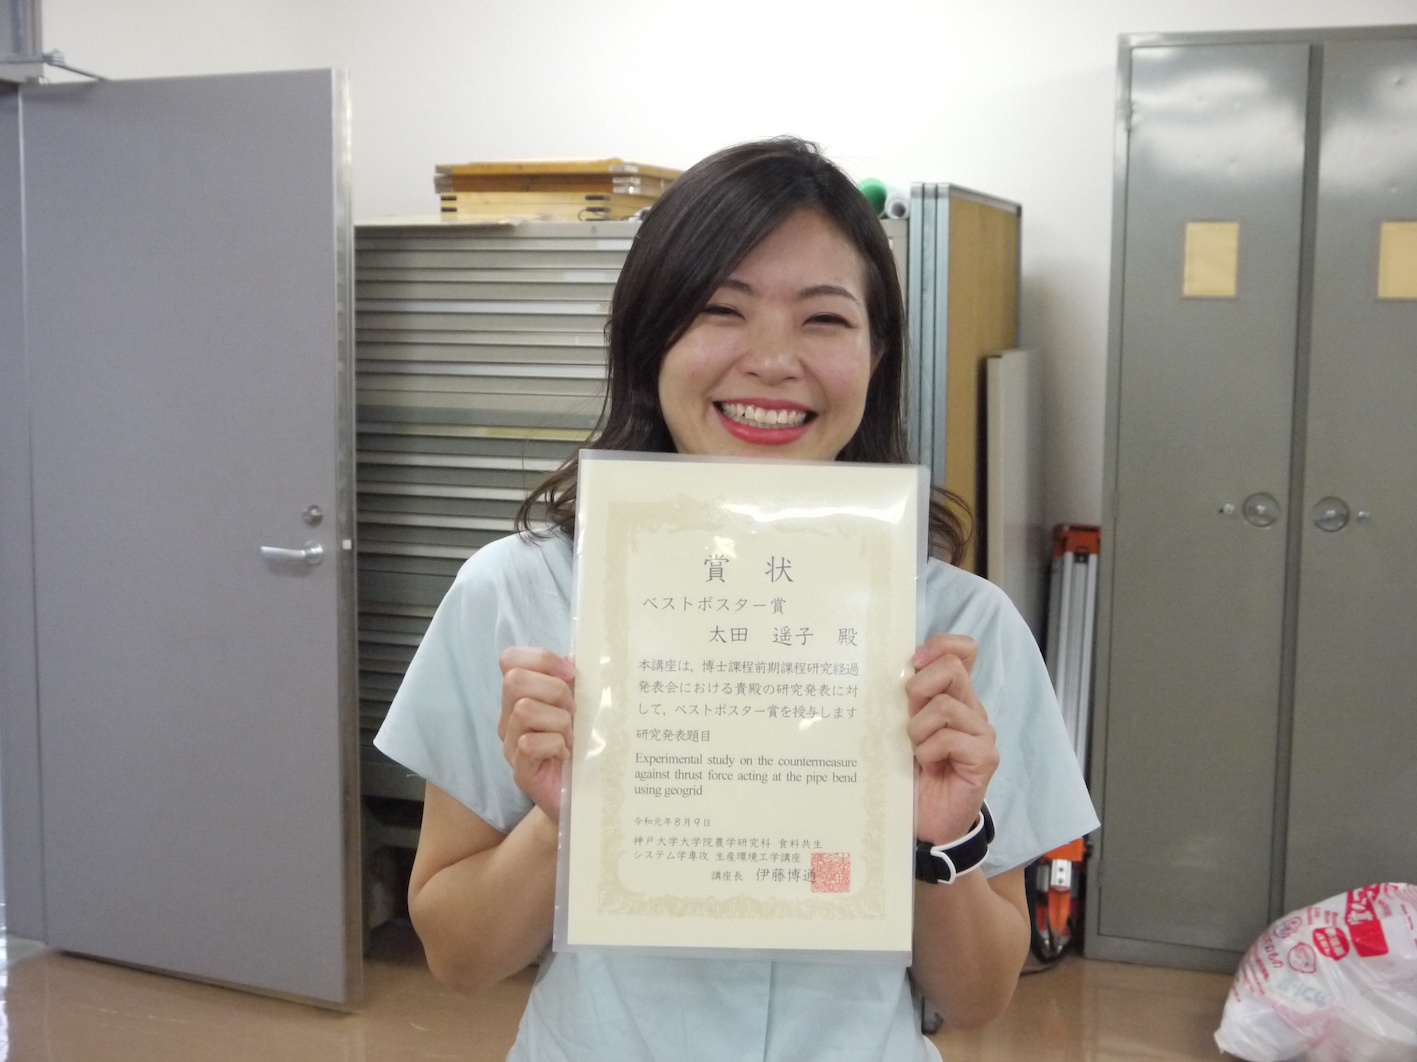 賞 状
ベストポスター賞
太田 遥子 殿
本講座は，博士課程前期課程研究経過
発表会における貴殿の研究発表に対
して，ベストポスター賞を授与します
研究発表題目
Experimental study on the countermeasure
against thrust force acting at the pipe bend
using geogrid
令和元年8月9日
神戸大学大学院農学研究科 食料共生
システム学専攻 生産環境工学講座
講座長 伊藤博通